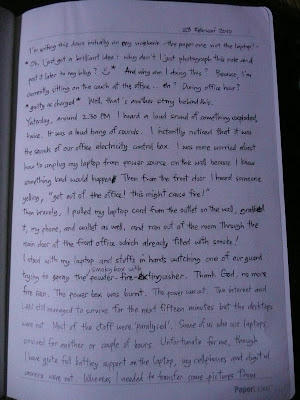 23 Februari 2010
I'm writing this down initially on my notebook - the paper one not the laptop! -
* Oh, I just got a brilliant idea: why don't I just photograph this note and
post it later to my blog? And why am I doing this? Because, I'm
currently sitting on the couch at the office .. eh? During office hour?
* guilty as charged * Well, that's another story behind this.
Yesterday, around 2.30 PM I heard a loud sound of something exploded,
twice. It was a loud bang of sounds. I instantly noticed that it was
the sounds of our office electricity control box. I was more worried about
how to unplug my laptop from power source on the wall because I knew
something bad would happen. Then from the front door I heard someone
yelling, "get out of the office! this might cause fire!"
Then bravely, I pulled my laptop cord from the outlet on the wall, grabbed
it, my phone, and wallet as well, and ran out of the room through the
main door at the front office which already filled with smoke!
I stood with my laptop and stuffs in hands watching one of our guard
trying to spray the smoky box with powder fire extinguisher. Thank God, no more
fire seen. The power box was burnt. The power was out. The internet and
LAN still managed to survive for the next fifteen minutes but the desktops
were not. Most of the staff were 'paralysed'. Some of us who use laptops
survived for another or couple of hours. Unfortunate for me, though
I have quite full battery support on the laptop, my cellphones and digital
camera were not. Whereas I needed to transfer some pictures from
Paperline